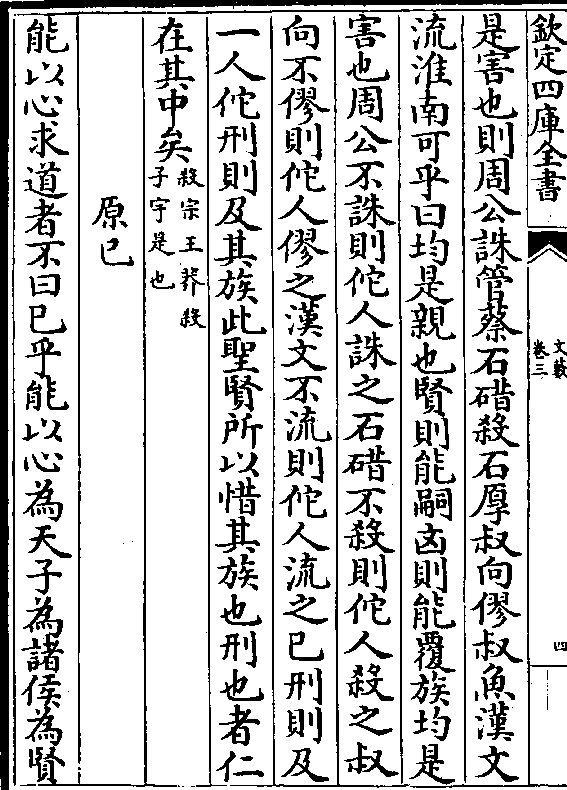 欽定四庫全書
文藪
卷三
四
是害也則周公誅管蔡石碏殺石厚叔向僇叔魚漢文
流淮南可乎曰均是親也賢則能嗣凶則能覆族均是
害也周公不誅則佗人誅之石碏不殺則佗人殺之叔
向不僇則佗人僇之漢文不流則佗人流之已刑則及
一人佗刑則及其族此聖賢所以惜其族也刑也者仁
在其中矣
殺宗王莽殺
子宇是也
原已
能以心求道者不曰已乎能以心為天子為諸侯為賢